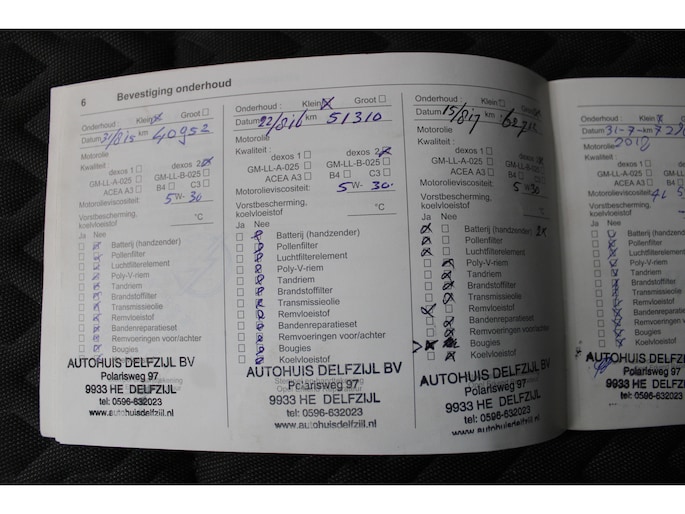 6 Bevestiging onderhoud
Onderhoud : Klein Groot
Datum 31/8/15 km 40952
Motorolie
Kwaliteit :
dexos 1 dexos 2
GM-LL-A-025 GM-LL-B-025
ACEA A3 B4 C3
Motorolieviscositeit 5W-30
Vorstbescherming,
koelvloeistof °C
Ja Nee
Batterij (handzender)
Pollenfilter
Luchtfilterelement
Poly-V-riem
Tandriem
Brandstoffilter
Transmissieolie
Remvloeistof
Bandenreparatieset
Remvoeringen voor/achter
Bougies
Koelvloeistof
AUTOHUIS DELFZIJL BV
Polarisweg 97
9933 HE DELFZIJL
tel: 0596-632023
www.autohuisdelfzijl.nl
Onderhoud : Klein Groot
Datum: 22/8/16 km 51310
Motorolie
Kwaliteit :
dexos 1 dexos 2
GM-LL-A-025 GM-LL-B-025
ACEA A3 B4 C3
Motorolieviscositeit: 5W-30.
Vorstbescherming,
koelvloeistof °C
Ja Nee
Batterij (handzender)
Pollenfilter
Luchtfilterelement
Poly-V-riem
Tandriem
Brandstoffilter
Transmissieolie
Remvloeistof
Bandenreparatieset
Remvoeringen voor/achter
Bougies
Koelvloeistof
AUTOHUIS DELFZIJL BV
Polarisweg 97
9933 HE DELFZIJL
tel: 0596-632023
www.autohuisdelfzijl.nl
Onderhoud : Klein Groot
Datum: 15/8/17 km
Motorolie
Kwaliteit :
dexos 1 dexos 2
GM-LL-A-025 GM-LL-B-025
ACEA A3 B4 C3
Motorolieviscositeit: 5W-30
Vorstbescherming,
koelvloeistof °C
Ja Nee
Batterij (handzender) 2x
Pollenfilter
Luchtfilterelement
Poly-V-riem
Tandriem
Brandstoffilter
Transmissieolie
Remvloeistof
Bandenreparatieset
Remvoeringen voor/achter
Bougies
Koelvloeistof
AUTOHUIS DELFZIJL BV
Polarisweg 97
9933 HE DELFZIJL
tel: 0596-632023
www.autohuisdelfzijl.nl
Onderhoud : Klein
Datum: 31-7- km
Motorolie
Kwaliteit :
dexos 1
GM-LL-A-025
ACEA A3
Motorolieviscositeit: 4L
Vorstbescherming,
koelvloeistof
Ja Nee
Batterij (handze
Pollenfilter
Luchtfilterelement
Poly-V-riem
Tandriem
Brandstoffilter
Transmissieolie
Remvloeistof
Bandenreparatie
Remvoeringen
Bougies
AUTOHUIS DELFZ
Polarisweg
9933 HE DELF
tel: 0596-632
www.autohuisde